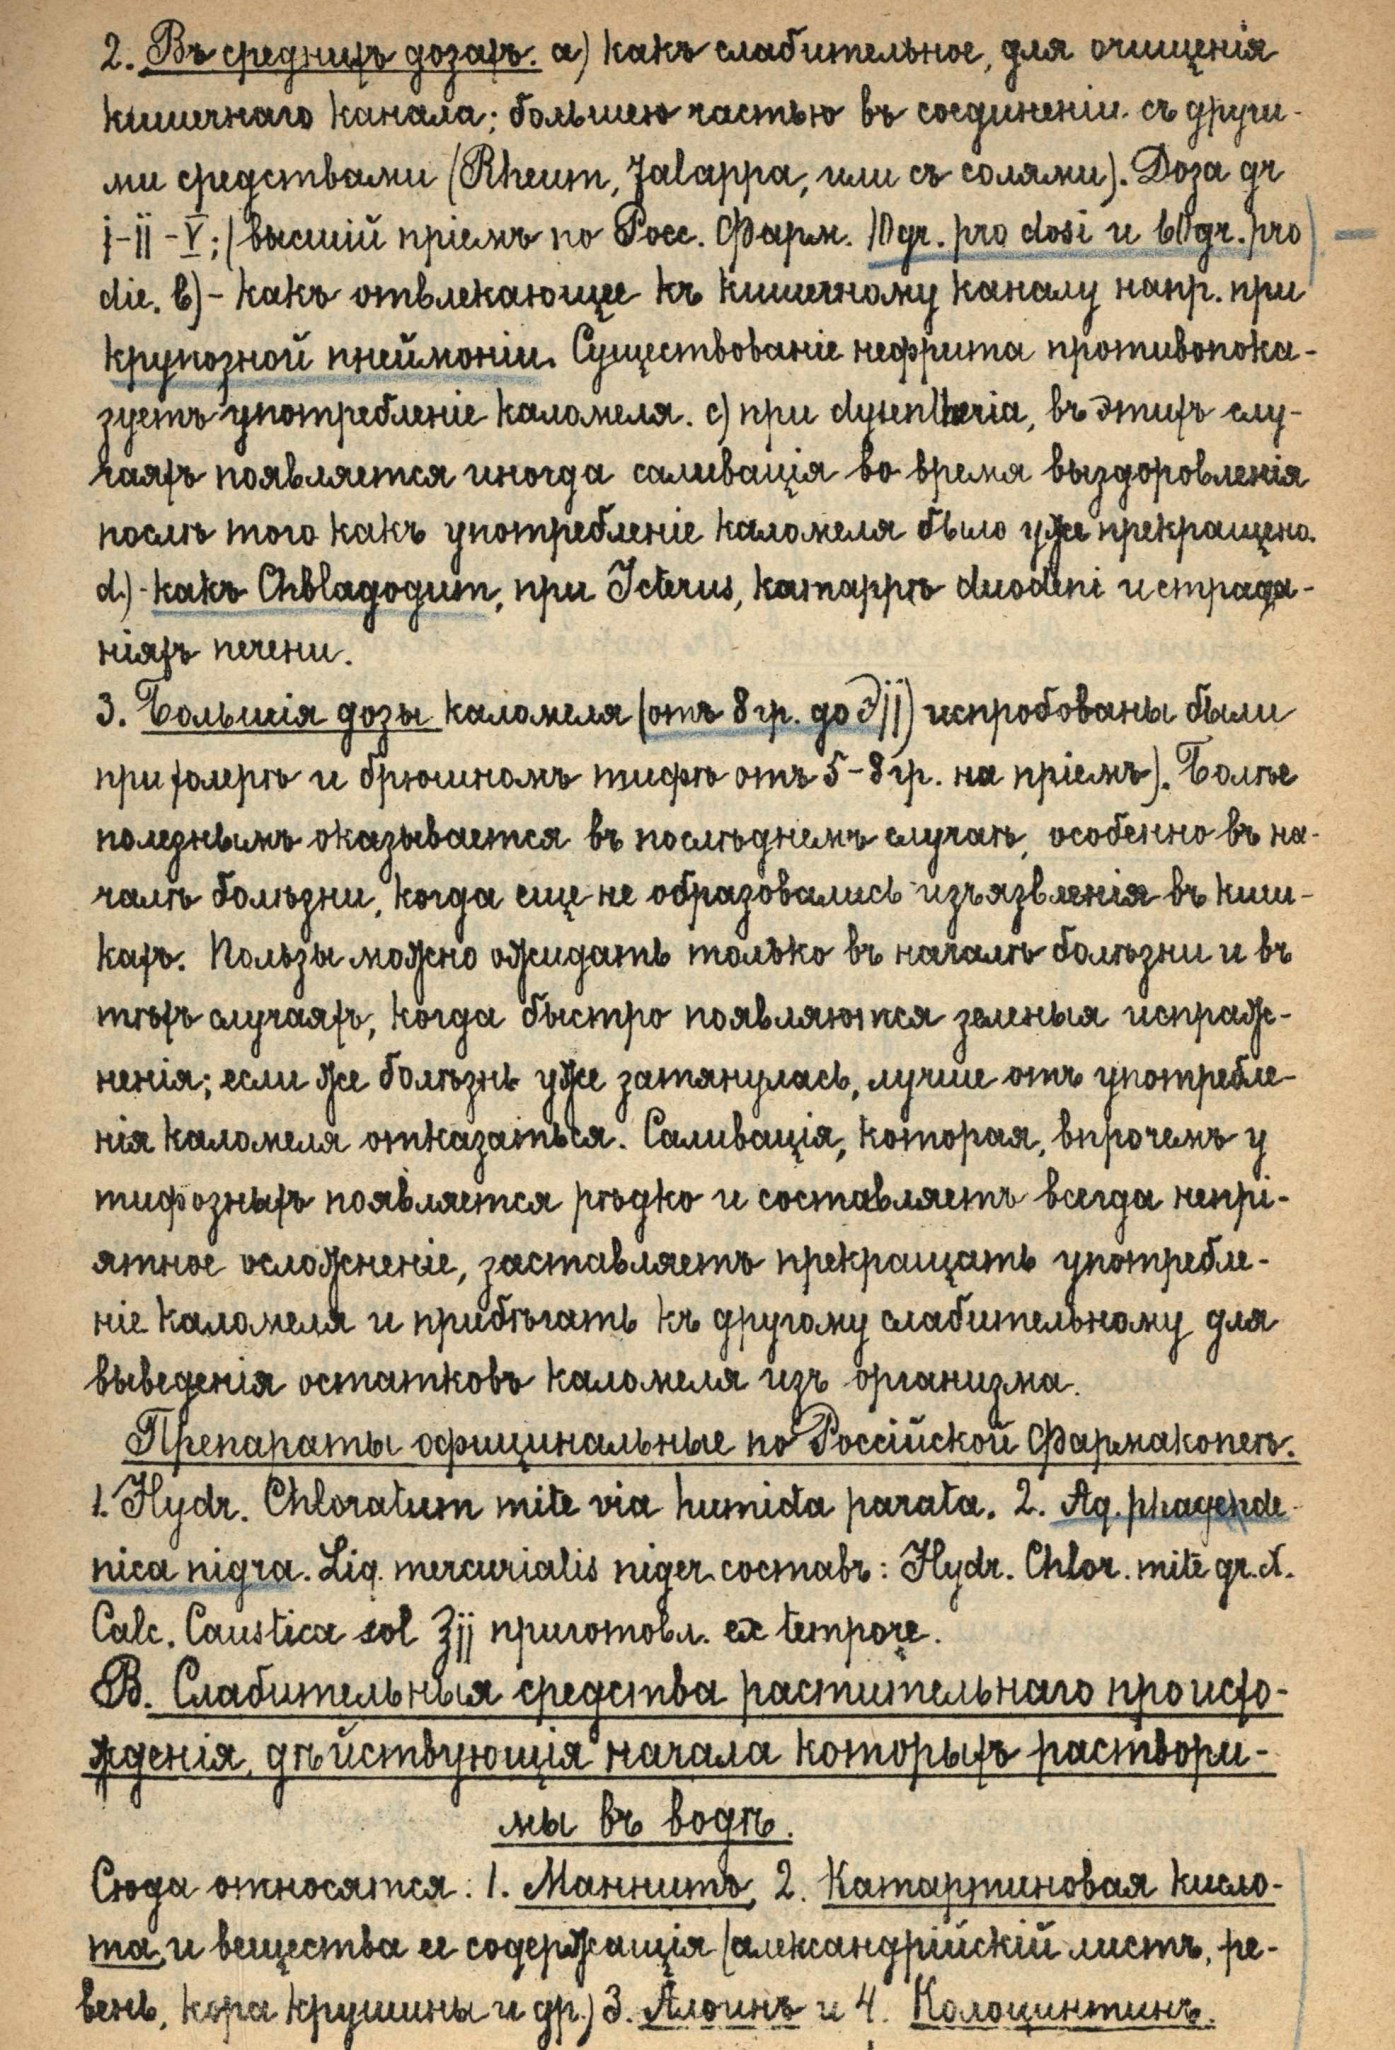 2. Въ среднихъ дозахъ. а) какъ слабительное, для очищенія
кишечнаго канала; большею частью въ соединеніи съ други-
ми средствами (Rheum, Jalappa, или съ солями). Доза gr
i-ii-V; (высшій пріемъ по Росс. Фарм. 10 gr. pro dosi и 60 gr. pro
die. b) - какъ отвлекающее къ кишечному каналу напр. при
крупозной пнеймоніи. Существованіе нефрита противопока-
зуетъ употребленіе каломеля. c) при dysentheria, въ этихъ слу-
чаяхъ появляется иногда саливація во время выздоровленія
послѣ того какъ употребленіе каломеля было уже прекращено.
d.) - какъ Chblagogum, при Icterus, катаррѣ duodeni и страда-
ніяхъ печени.
3. Большія дозы каломеля (отъ 8 гр. до ℈jj) испробованы были
при холерѣ и брюшномъ тифѣ отъ 5-8 гр. на пріемъ). Болѣе
полезнымъ оказывается въ послѣднемъ случаѣ, особенно въ на-
чалѣ болѣзни, когда еще не образовались изъязвленія въ киш-
кахъ. Пользы можно ожидать только въ началѣ болѣзни и въ
тѣхъ случаяхъ, когда быстро появляются зеленыя испраж-
ненія; если же болѣзнь уже затянулась, лучше отъ употребле-
нія каломеля отказаться. Саливація, которая, впрочемъ у
тифозныхъ появляется рѣдко и составляетъ всегда непрі-
ятное осложненіе, заставляетъ прекращать употребле-
ніе каломеля и прибѣгать къ другому слабительному для
выведенія остатковъ каломеля изъ организма.
Препараты официнальные по Россійской Фармакопеѣ.
1. Hydr. Chloratum mite via humida parata. 2. Aq. phagende-
nica nigra. Liq. mercurialis niger. составъ: Hydr. Chlor. mite gr. X.
Calc. Caustica sol ʒjj приготовл. ex tempore.
B. Слабительныя средства растительнаго происхо-
жденія, дѣйствующія начала которыхъ раствори-
мы въ водѣ.
Сюда относятся: 1. Маннитъ, 2. Катартиновая кисло-
та, и вещества ее содержащія (александрійскій листъ, ре-
вень, кора крушины и др.) 3. Алоинъ и 4. Колоцинтинъ.